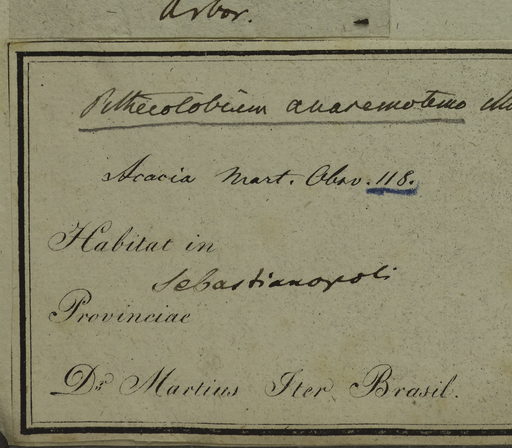 Arbor.
Pithecolobium avaremotemo M
Acacia Mart. Obsv. 118.
Habitat in
Sebastianopoli
Provinciae
Dr. Martius Iter Brasil.